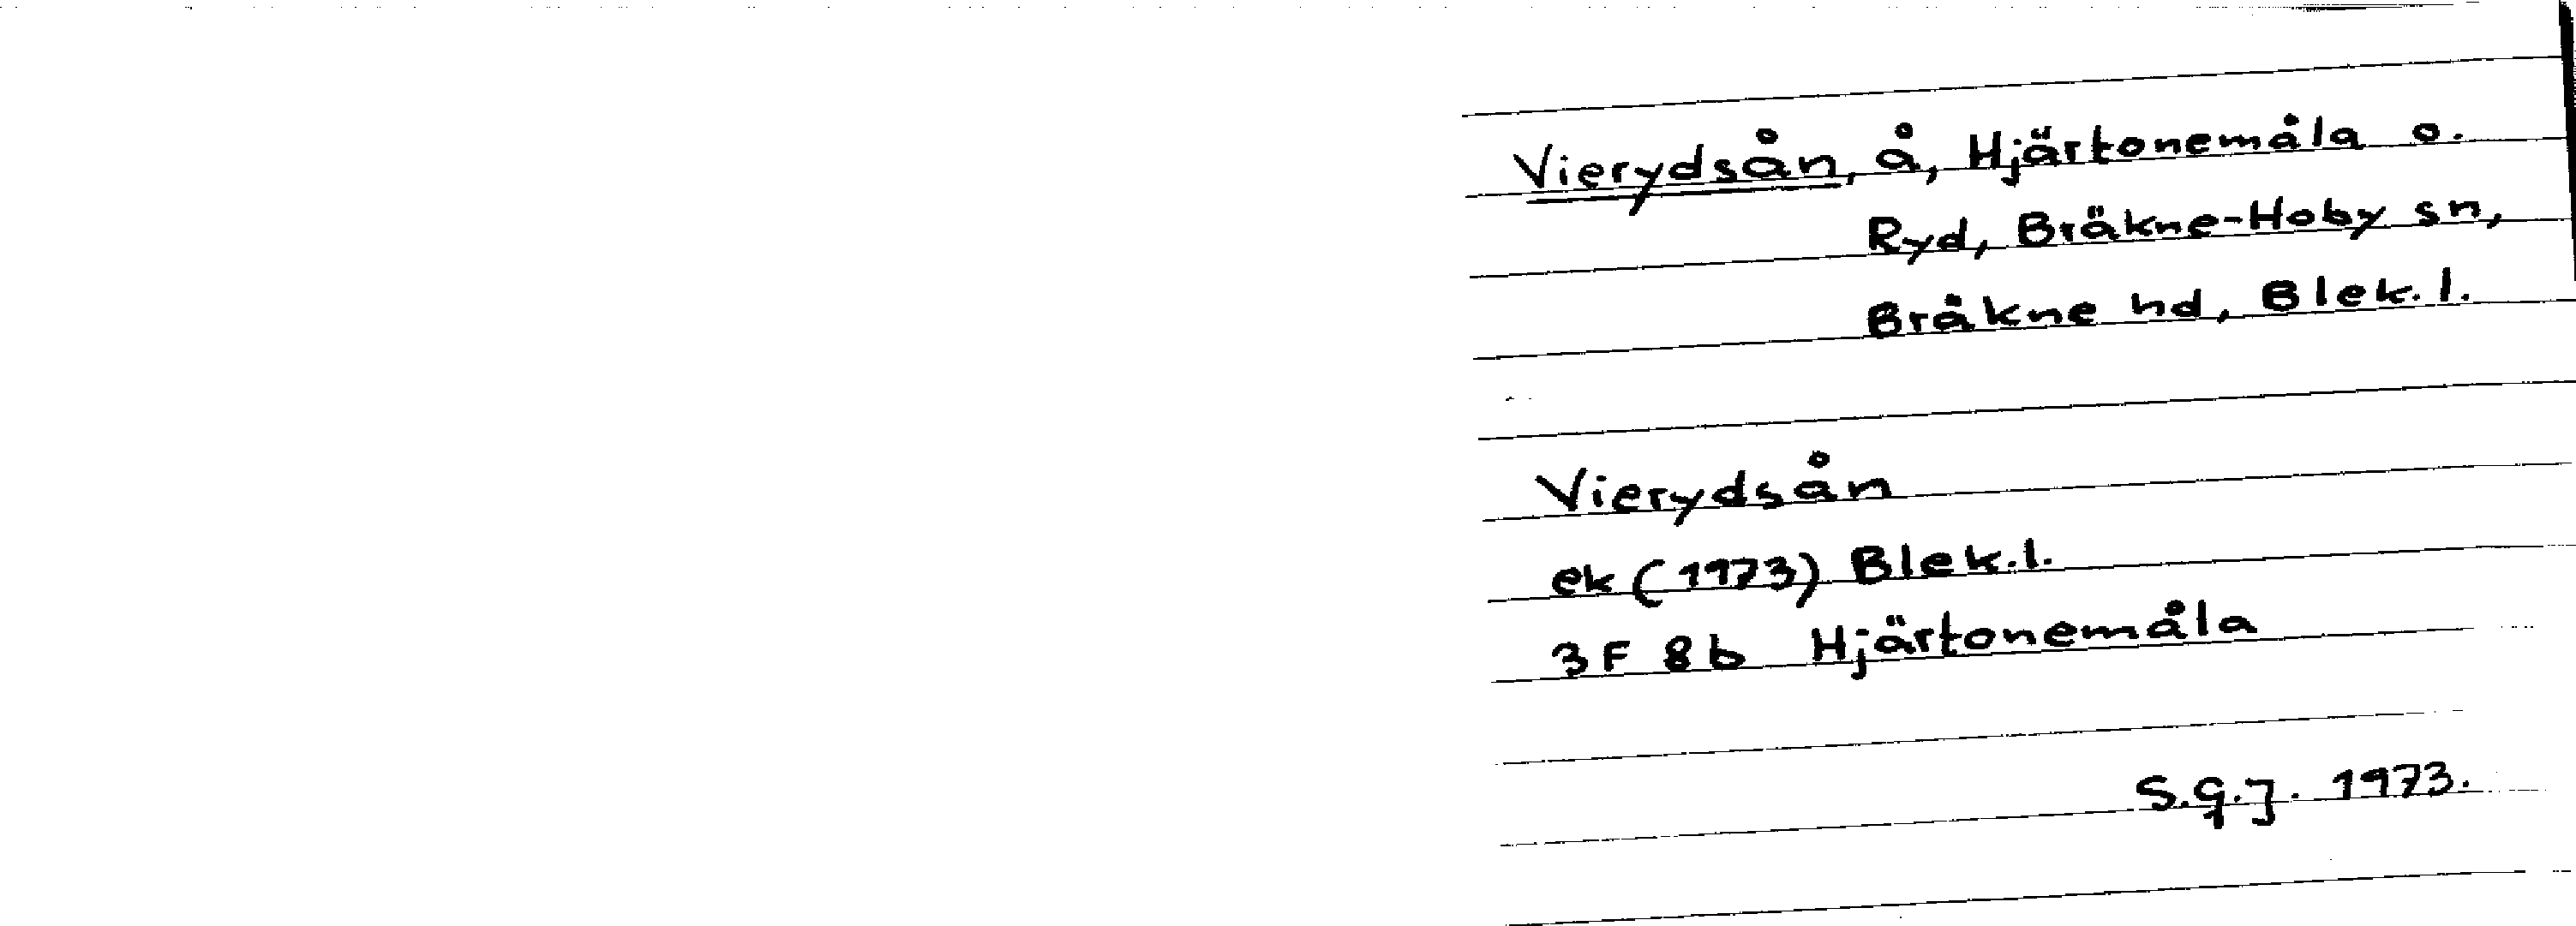 Vierydsån, å, Hjärtonemåla o.
Ryd, Bräkne-Hoby sn,
Bräkne hd, Blek. l.
Vierydsån
ek (1973) Blek. l.
3F 8b Hjärtonemåla
S.G.J. 1973.